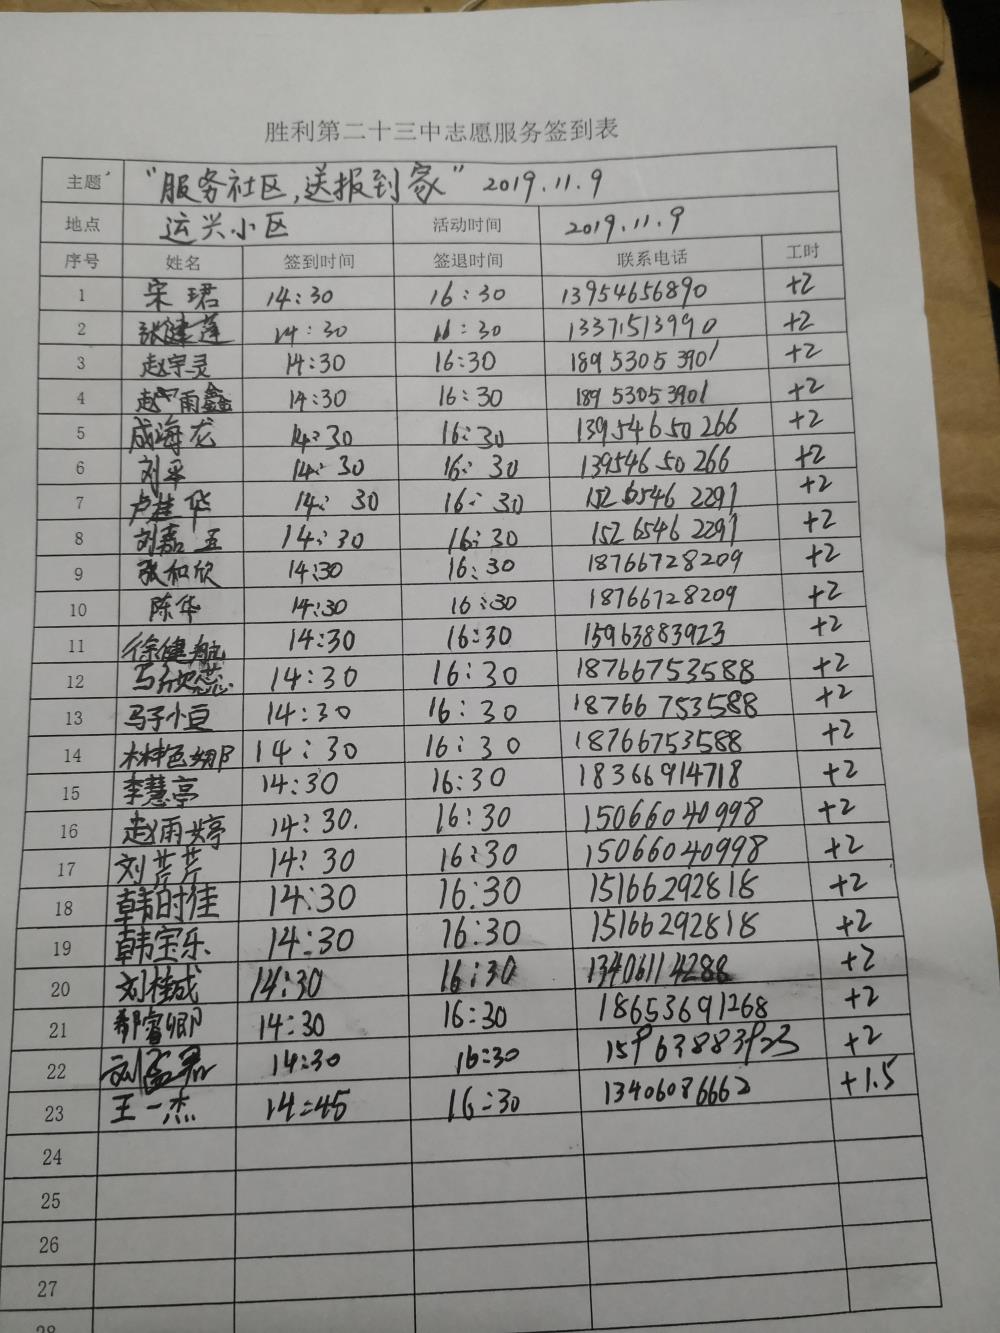 胜利第二十三中志愿服务签到表
主题 "服务社区,送报到家" 2019.11.9
地点 运兴小区 活动时间 2019.11.9
序号 姓名 签到时间 签退时间 联系电话 工时
1 宋珺 14:30 16:30 13954656890 +2
2 张健莲 14:30 16:30 13371513990 +2
3 赵宇灵 14:30 16:30 18953053901 +2
4 赵雨鑫 14:30 16:30 18953053901 +2
5 成海龙 14:30 16:30 13954650266 +2
6 刘平 14:30 16:30 13954650266 +2
7 卢桂华 14:30 16:30 15265462291 +2
8 刘嘉玉 14:30 16:30 15265462291 +2
9 张和欣 14:30 16:30 18766728209 +2
10 陈华 14:30 16:30 18766728209 +2
11 徐健航 14:30 16:30 15963883923 +2
12 马欣蕊 14:30 16:30 18766753588 +2
13 马子小豆 14:30 16:30 18766753588 +2
14 14:30 16:30 18766753588 +2
15 李慧亭 14:30 16:30 18366914718 +2
16 赵雨婷 14:30. 16:30 15066040998 +2
17 刘芹芹 14:30 16:30 15066040998 +2
18 韩时佳 14:30 16:30 15166292818 +2
19 韩宝乐 14:30 16:30 15166292818 +2
20 刘桂成 14:30 16:30 13406114288 +2
21 鄢睿卿 14:30 16:30 18653691268 +2
22 刘孟君 14:30 16:30 15963883923 +2
23 王一杰 14:45 16:30 13406086662 +1.5
24
25
26
27
28